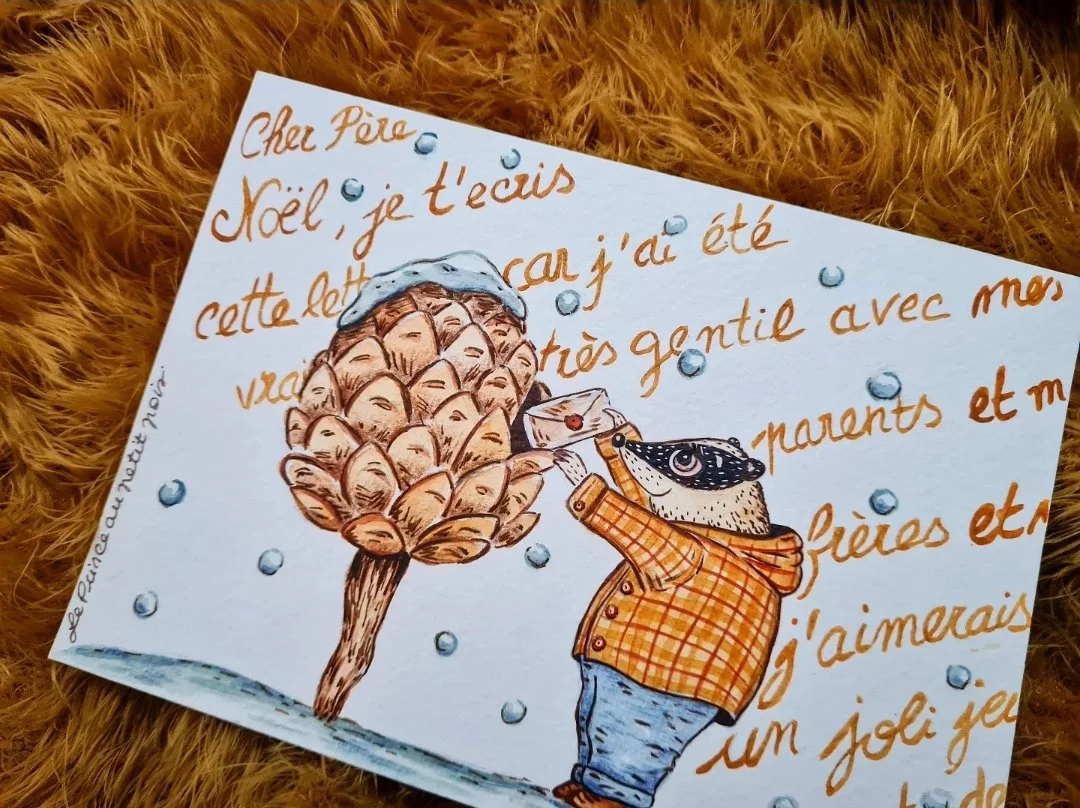 Cher Père
Noël, je t'ecris
cette lett car j'ai été
vrai très gentil avec mes
parents et m
frères et
j'aimerais
un joli jeu
de
Le Prince au petit pois